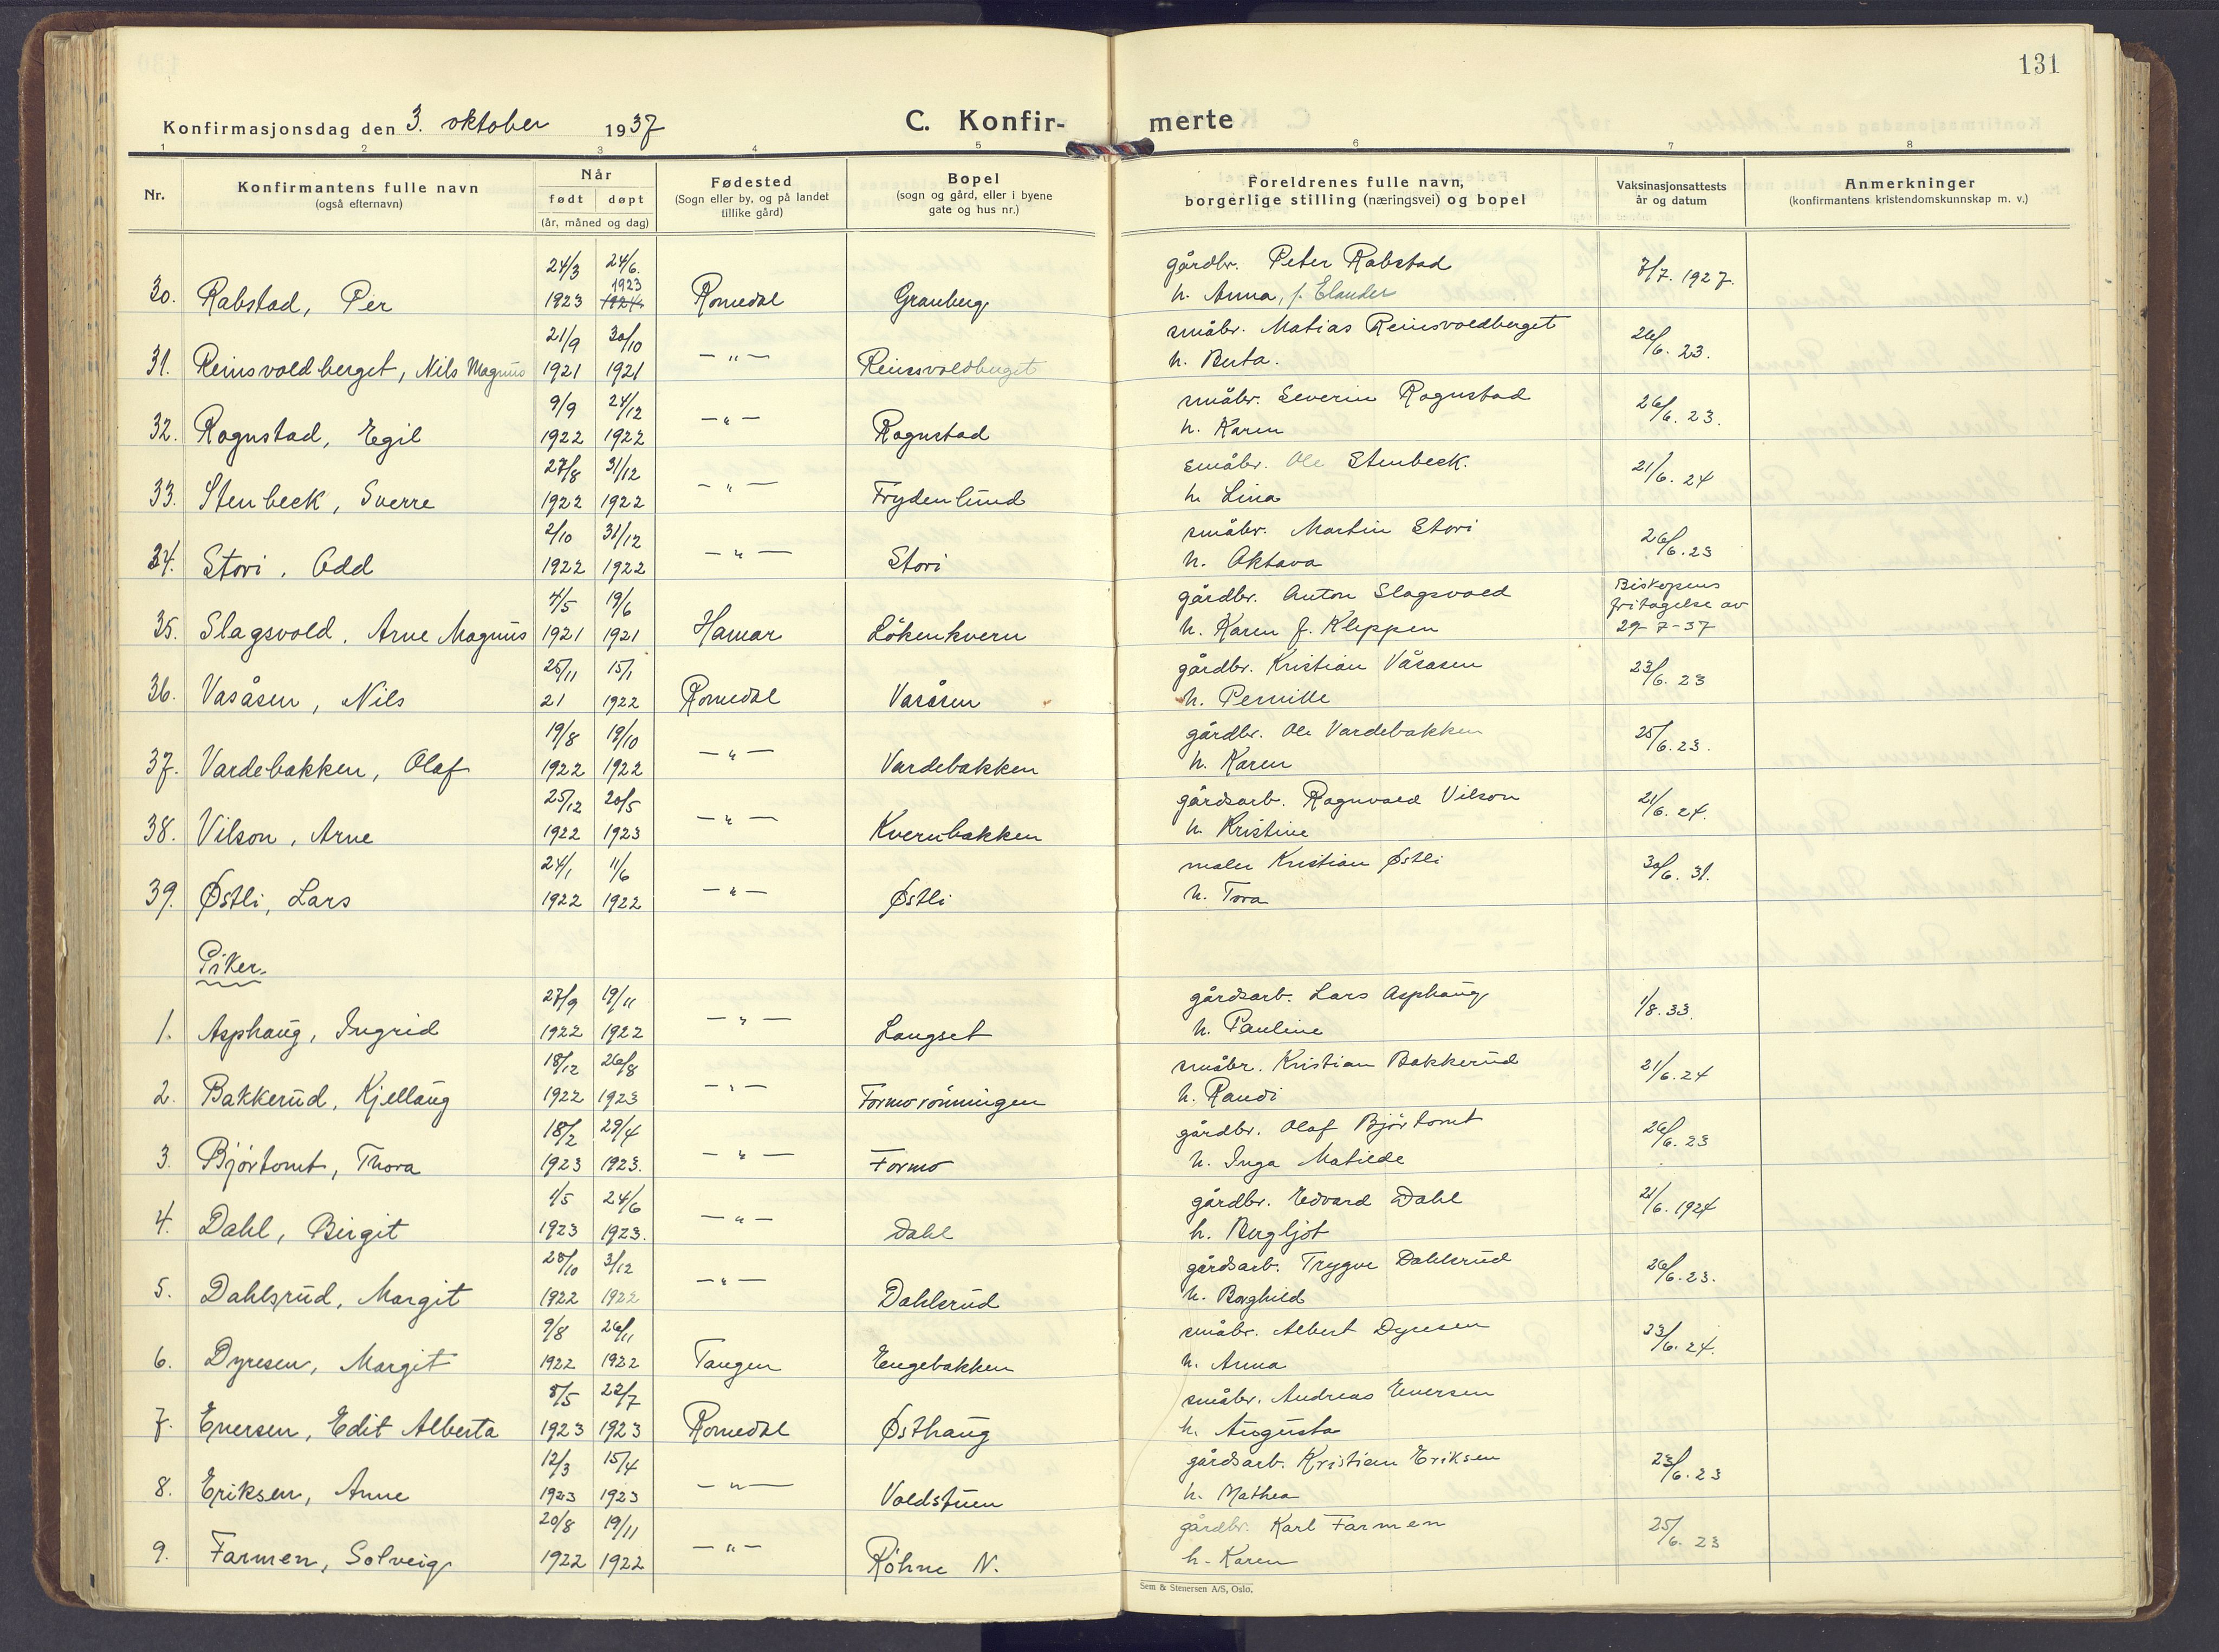 131
Konfirmasjonsdag den 3. oktober 1937
C. Konfir-merte
1 2 3 4 5 6 7 8
Nr.
Konfirmantens fulle navn
(også efternavn)
Når
født døpt
(år, måned og dag)
Fødested
(Sogn eller by, og på landet
tillike gård)
Bopel
(sogn og gård, eller i byene
gate og hus nr.)
Foreldrenes fulle navn,
borgerlige stilling (næringsvei) og bopel
Vaksinasjonsattests
år og datum
Anmerkninger
(konfirmantens kristendomskunnskap m. v.)
24/3 24/6. gårdbr. Peter Rabstad 7/7. 1927.
1923
30. Rabstad, Per 1923 1924 Romedal Granberg h. Anna, f. Elander
21/9 30/10 småbr. Matias Reinsvoldberget 26/6. 23.
31. Reinsvoldberget, Nils Magnus 1921 1921 — " — Reinsvoldberget h. Berta.
9/9 24/12 småbr. Severin Rognstad 26/6. 23.
32. Rognstad, Egil 1922 1922 — " — Rognstad h. Karen
27/8 31/12 småbr. Ole Stenbeck. 21/6. 24
33. Stenbeck, Sverre 1922 1922 — " — Frydenlund h. Lina
2/10 31/12 småbr. Martin Stori 26/6. 23
34. Stori, Odd 1922 1922 — " — Stori h. Oktava
4/5 19/6 gårdbr. Anton Slagsvold Biskopens
fritagelse av
35. Slagsvold, Arne Magnus 1921 1921 Hamar Løkenkvern h. Karen f. Kleppen 29-7-37
25/11 15/1 gårdbr. Kristian Våsåsen 23/6. 23
36. Vasåsen, Nils 21 1922 Romedal Vasåsen h. Pernille
19/8 19/10 gårdbr. Ole Vardebakken 25/6. 23.
37. Vardebakken, Olaf 1922 1922 — " — Vardebakken h. Karen
25/12 20/5 gårdsarb. Ragnvald Vilson 21/6. 24.
38. Vilson, Arne 1922 1923 — " — Kvernbakken h. Kristine
24/1 11/6 maler Kristian Østli 30/6. 31.
39. Østli, Lars 1922 1922 — " — Østli h. Tora
Piker.
27/9 19/11 gårdsarb. Lars Asphaug 1/8. 33.
1. Asphaug, Ingrid 1922 1922 — " — Langset h. Pauline
18/12 26/8 småbr. Kristian Bakkerud 21/6. 24
2. Bakkerud, Kjellaug 1922 1923 — " — Formorønningen h. Randi
18/2 29/4 gårdbr. Olaf Bjørtomt 26/6. 23
3. Bjørtomt, Thora 1923 1923. — " — Formo h. Inga Matilde
1/5 24/6 gårdbr. Edvard Dahl 21/6. 1924
4. Dahl, Birgit 1923 1923. — " — Dahl h. Bergljot
28/10 3/12 gårdsarb. Trygve Dahlsrud 26/6. 23.
5. Dahlsrud, Margit 1922 1922 — " — Dahlsrud h. Borghild
9/8 26/11 småbr. Albert Dyresen 23/6. 24.
6. Dyresen, Margit 1922 1922 Tangen Engebakken h. Anna
8/5 22/7 småbr. Andreas Enersen
7. Enersen, Edit Alberta 1923 1923 Romedal Østhaug h. Augusta
12/3 15/4 gårdsarb. Kristian Eriksen 23/6. 23
8. Eriksen, Anne 1923 1923 — " — Voldstuen h. Mathea
20/8 19/11 gårdbr. Karl Farmen 25/6. 23
9. Farmen, Solveig 1922 1922 — " — Røhne N. h. Karen
Sem & Stenersen A/S, Oslo.